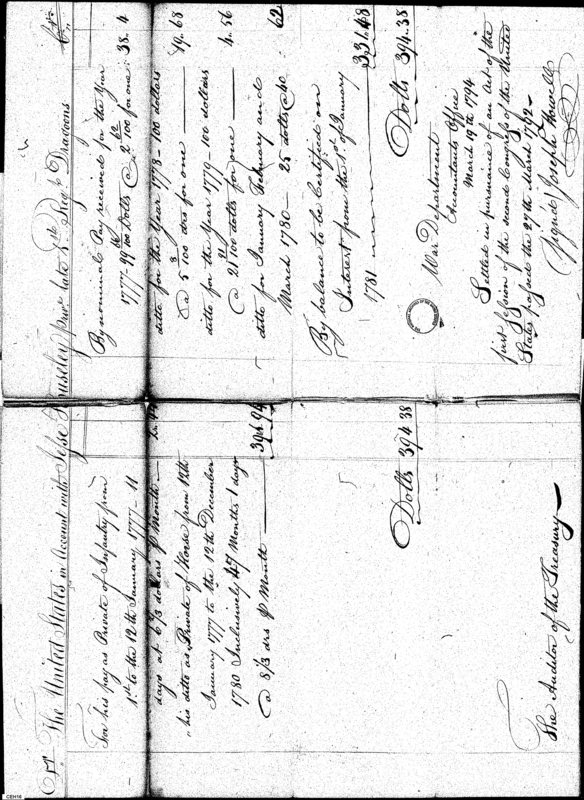 Dr The United States in Account with Jesse Houseley priv. late 4th Regt. Dragoons Cr
For his pay as Private of Infantry from
1st to the 12th January 1777 - 11
days at 6 2/3 dollars ⅌ Month — 2.44
his ditto as Private of Horse from 12th
January 1777 to the 12th December
1780 Inclusively 47 Months 1 days
@ 8 1/3 drs ⅌ Month — 391.94
Dolls 394.38
The Auditor of the Treasury
By nominal Pay received for the Year
1777 - 49 Dolls @ 2 62 100 for one. 38.4
ditto for the Year 1778 - 100 dollars
@ 5 100 drs for one — 19.68
ditto for the Year 1779 - 100 dolls
@ 21 100 dolls for one — 4.56
ditto for January February and
March 1780 — 25 dolls @ 40 62
By balance to be Certified on
Interest from the 1st of January
1781 — 331.48
Dolls 394.38
War Department
Accountants Office
March 19th 1794
Settled in pursuance of an Act of the
first Session of the second Congress of the United
States passed the 27th March 1792 -
Signed Joseph Howell
CEH16